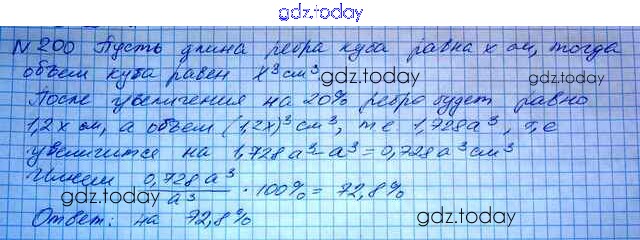 gdz.today
N 200 Пусть длина ребра куба равна x см, тогда
объем куба равен x³ см³
gdz.today
gdz.today
После увеличения на 20% ребро будет равно
1,2x см, а объем (1,2x)³ см³, т.е 1,728a³, т.е
gdz.today
увеличится на 1,728a³ - a³ = 0,728a³ см³
Имеем 0,728a³ / a³ · 100% = 72,8%
gdz.today
gdz.today
Ответ: на 72,8%